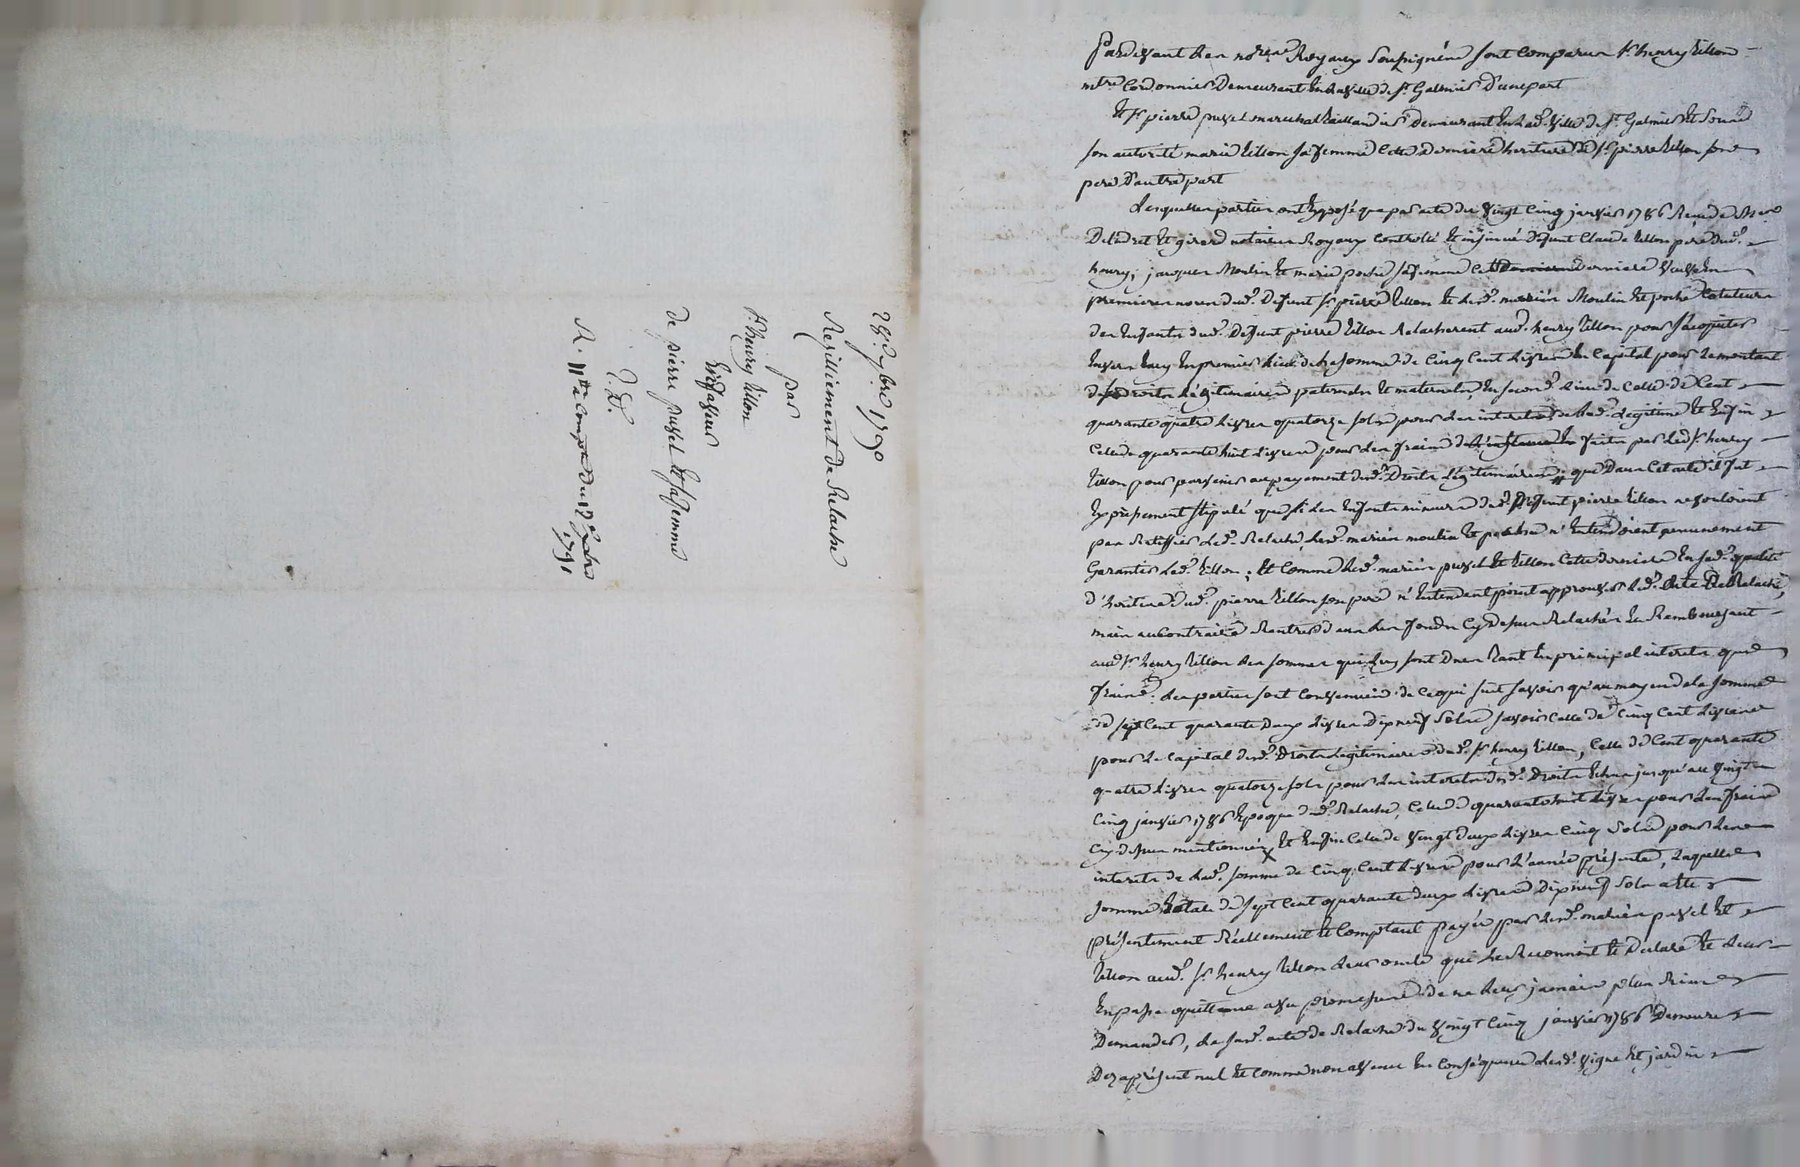 28e. 7bre 1790
Resilliement de Relache
par
Sr. henry tillon
En faveur
de pierre puzel Et sa femme
R. 11tt a compte du 12e 7bre
1791
Pardevant Les notres Royaux Soussignés sont Comparus Sr. henry tillon
mtre Cordonnier Demeurant En la ville de St. Galmier D'une part
Et Sr. pierre puzel marechal taillandier Demeurant En lad. ville de St. Galmier Et Sous
son autorité marie tillon sa femme Cette derniere heritiere de Sr. pierre tillon son
pere D'autre part
Lesquelles parties ont Exposé que par acte du vingt Cinq janvier 1786 Reçu
et girard notaires Royaux Controllé Et insinué Defunt Claude tillon pere dud.
henry, jacques Moulin Et marie poche sa femme Cette derniere veuve En
premieres noces dud. Defunt Sr. pierre tillon Et lesd. mariés Moulin Et poche Cotuteurs
des Enfants dud. Defunt pierre tillon Relacherent aud. henry tillon pour s'acquitter
Envers luy En premier lieu de la somme de Cinq Cent livres En Capital pour le montant
de ses droits Légitimaires paternels Et maternels, En second lieu de Celle de Cent
quarante quatre livres quatorze sols pour les interets de lad. Legitime Et Enfin
Celle de quarante huit livres pour les frais faits par led. Sr. henry
tillon pour parvenir au payement desd. Droits Légitimaires, que Dans Cet acte il fut
Expressement stipulé que si les Enfants mineurs dud. Deffunt pierre tillon ne vouloient
pas Ratiffier led. Relache, lesd. mariés moulin Et poche n'Entendoient aucunement
Garantir led. tillon, Et Comme lesd. mariés puzel Et tillon Cette derniere En sad. qualité
d'heritiere dud. pierre tillon son pere n'Entendent point approuver led. acte De Relache,
mais au Contraire Rentrer dans les fonds Cy dessus Relachés En Remboursant
aud. Sr. henry tillon les sommes qui luy sont Dues tant En principal interets que
frais. les parties sont Convenues de Ce qui suit savoir qu'au moyen de la somme
de sept Cent quarante deux livres Dixneuf Sols savoir Celle de Cinq Cent livres
pour le Capital desd. Droits legitimaires dud. Sr. henry tillon, Celle de Cent quarante
quatre livres quatorze sols pour les interets desd. Droits Echus jusqu'au vingt
Cinq janvier 1786 Epoque dud. Relache, Celle de quarante huit livres pour les frais
Cy dessus mentionnés Et Enfin Celle de vingt deux livres Cinq Sols pour les
interets de lad. somme de Cinq Cent livres pour l'année présente, Laquelle
somme totale de sept Cent quarante deux livres Dixneuf Sols a Eté
présentement Réellement Et Comptant payée par lesd. mariés puzel Et
tillon aud. Sr. henry tillon leur oncle qui la Reconnoit Et Declare Et leur
En passe quittance avec promesse de ne leur jamais plus Rien
Demander, le susd. acte de Relache du vingt Cinq janvier 1786 Demeure
Dez aprésent nul Et Comme non avenu En Conséquence lesd. vigne Et jardin